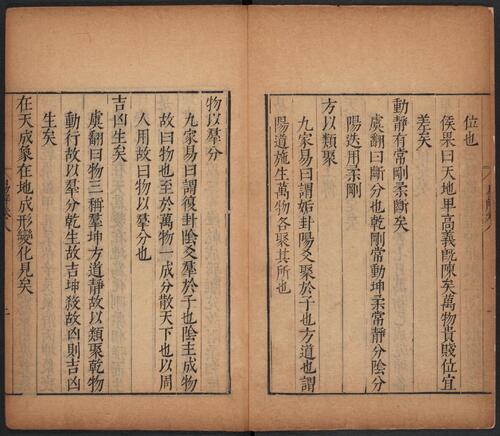 位也
侯果曰天地卑高義旣陳矣萬物貴賤位宜
差矣
動靜有常剛柔斷矣
虞翻曰斷分也乾剛常動坤柔常靜分隂分
陽迭用柔剛
方以類聚
九家易曰謂姤卦陽爻聚於于也方道也謂
陽道施生萬物各聚其所也
物以羣分
九家易曰謂彼卦隂爻羣於于也隂主成物
故曰物也至於萬物一成分散天下也以周
人用故曰物以羣分也
吉凶生矣
虞翻曰物三稱羣坤方道靜故以類聚乾物
動行故以羣分乾生故吉坤殺故凶則吉凶
生矣
在天成象在地成形變化見矣